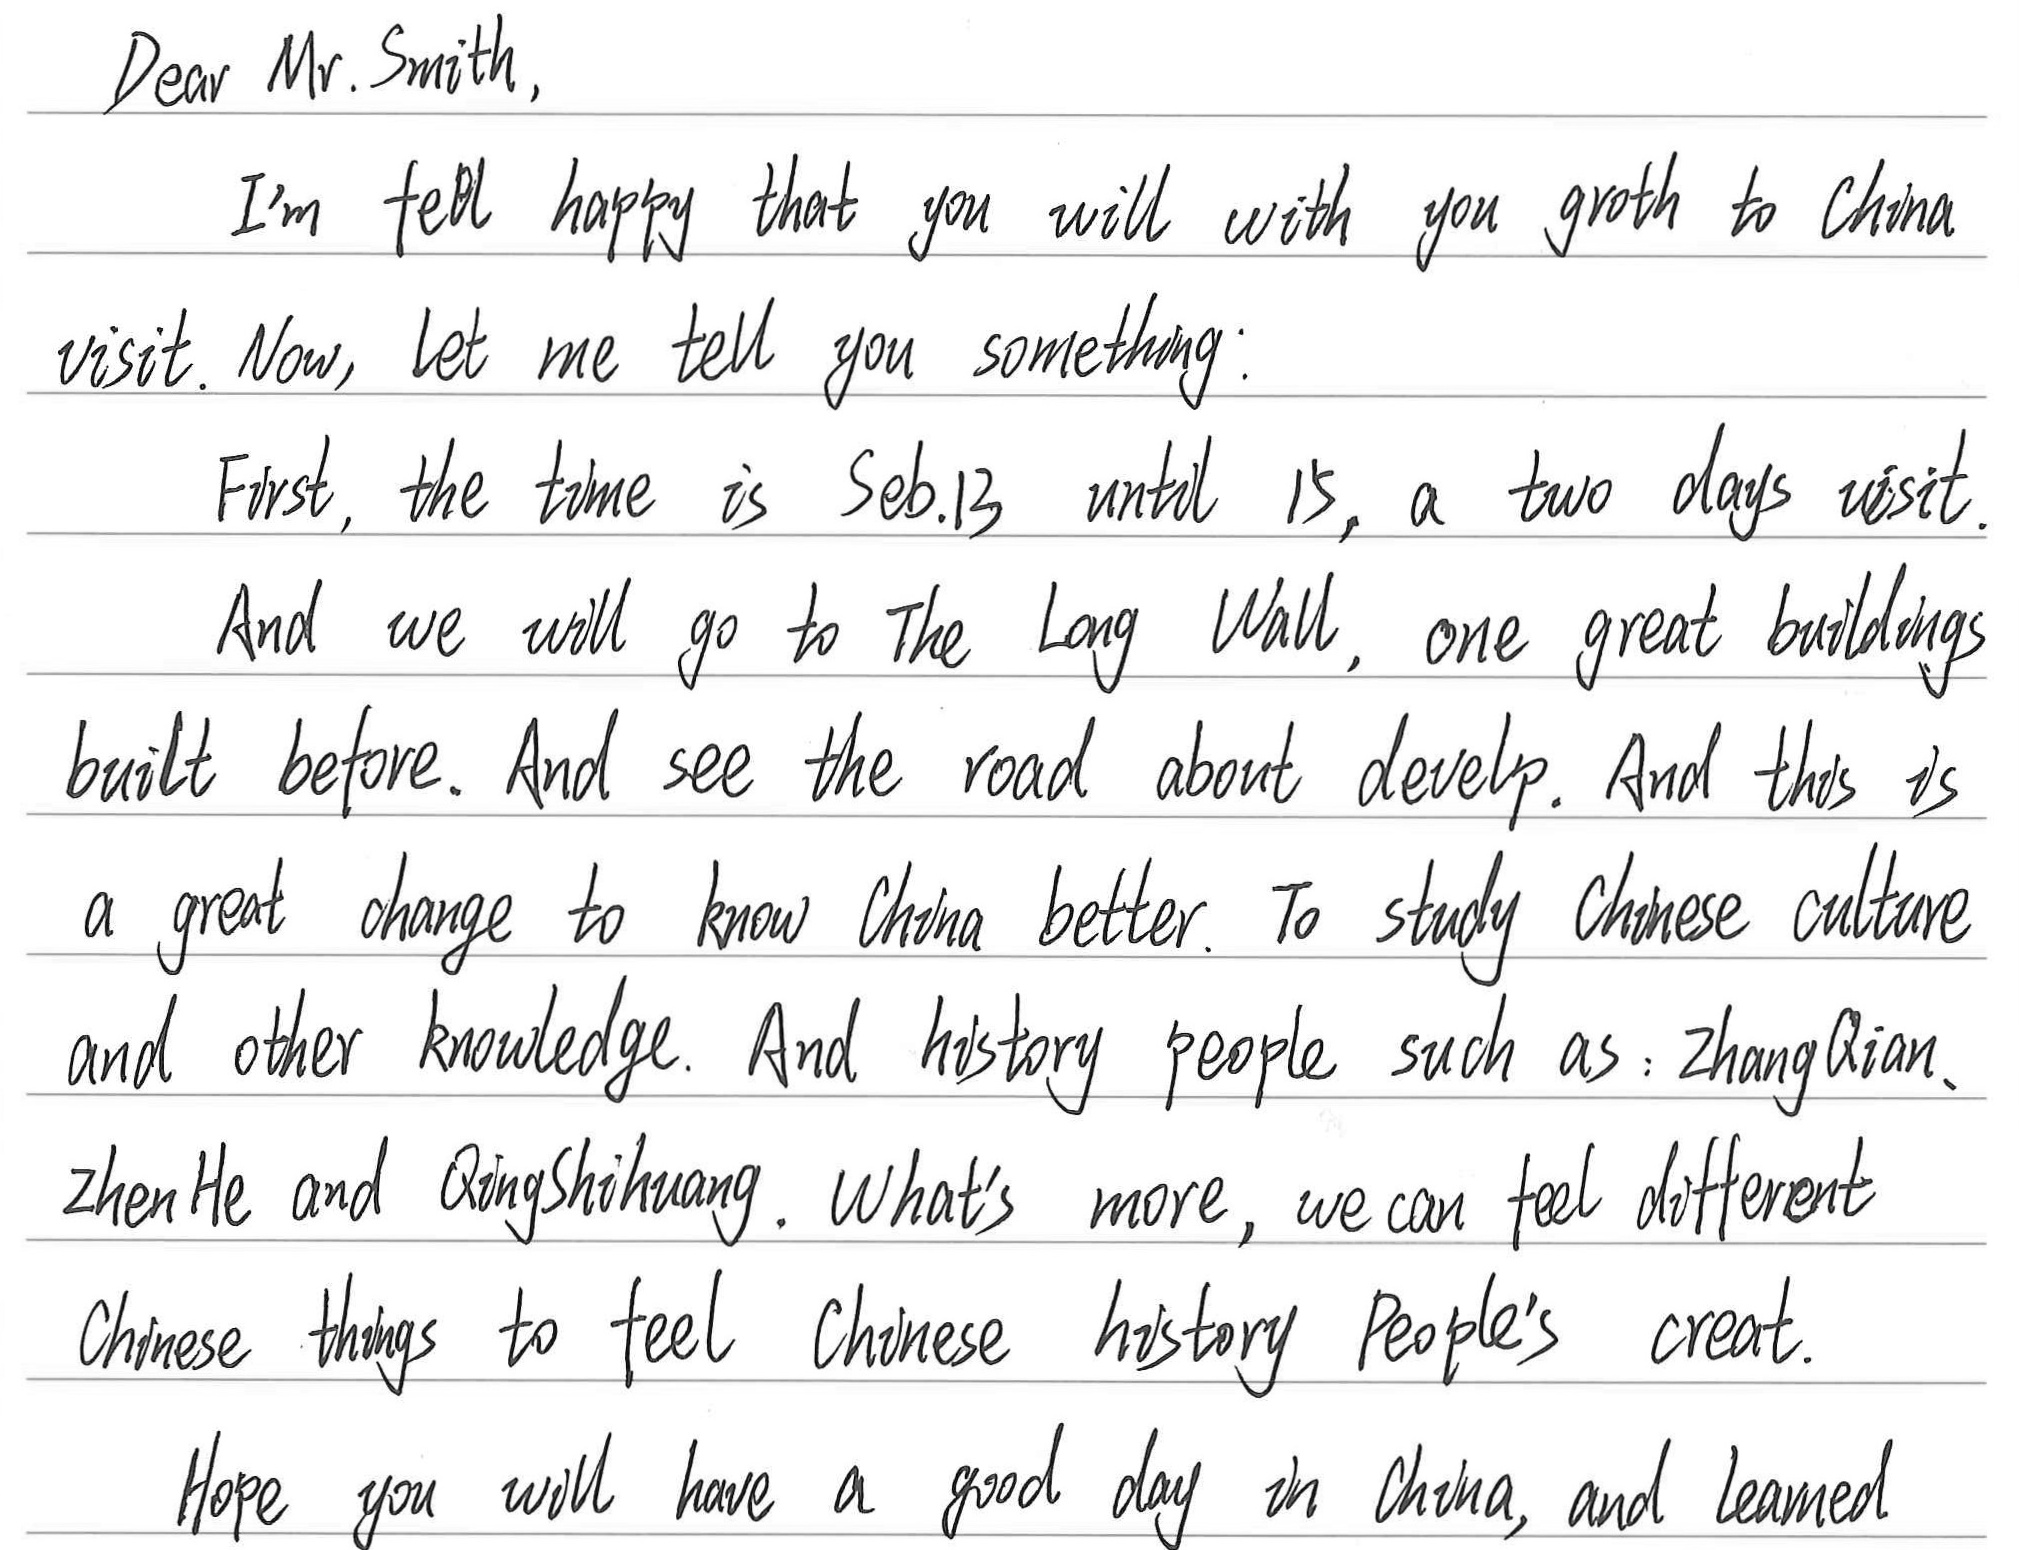 Dear Mr. Smith,
I'm fell happy that you will with you groth to China
visit. Now, let me tell you something:
First, the time is Seb.13 until 15, a two days visit.
And we will go to The Long Wall, one great buildings
built before. And see the road about develp. And this is
a great change to know China better. To study Chinese culture
and other knowledge. And history people such as: ZhangQian、
ZhenHe and QingShihuang. What's more, we can feel different
Chinese things to feel Chinese history People's creat.
Hope you will have a good day in China, and learned